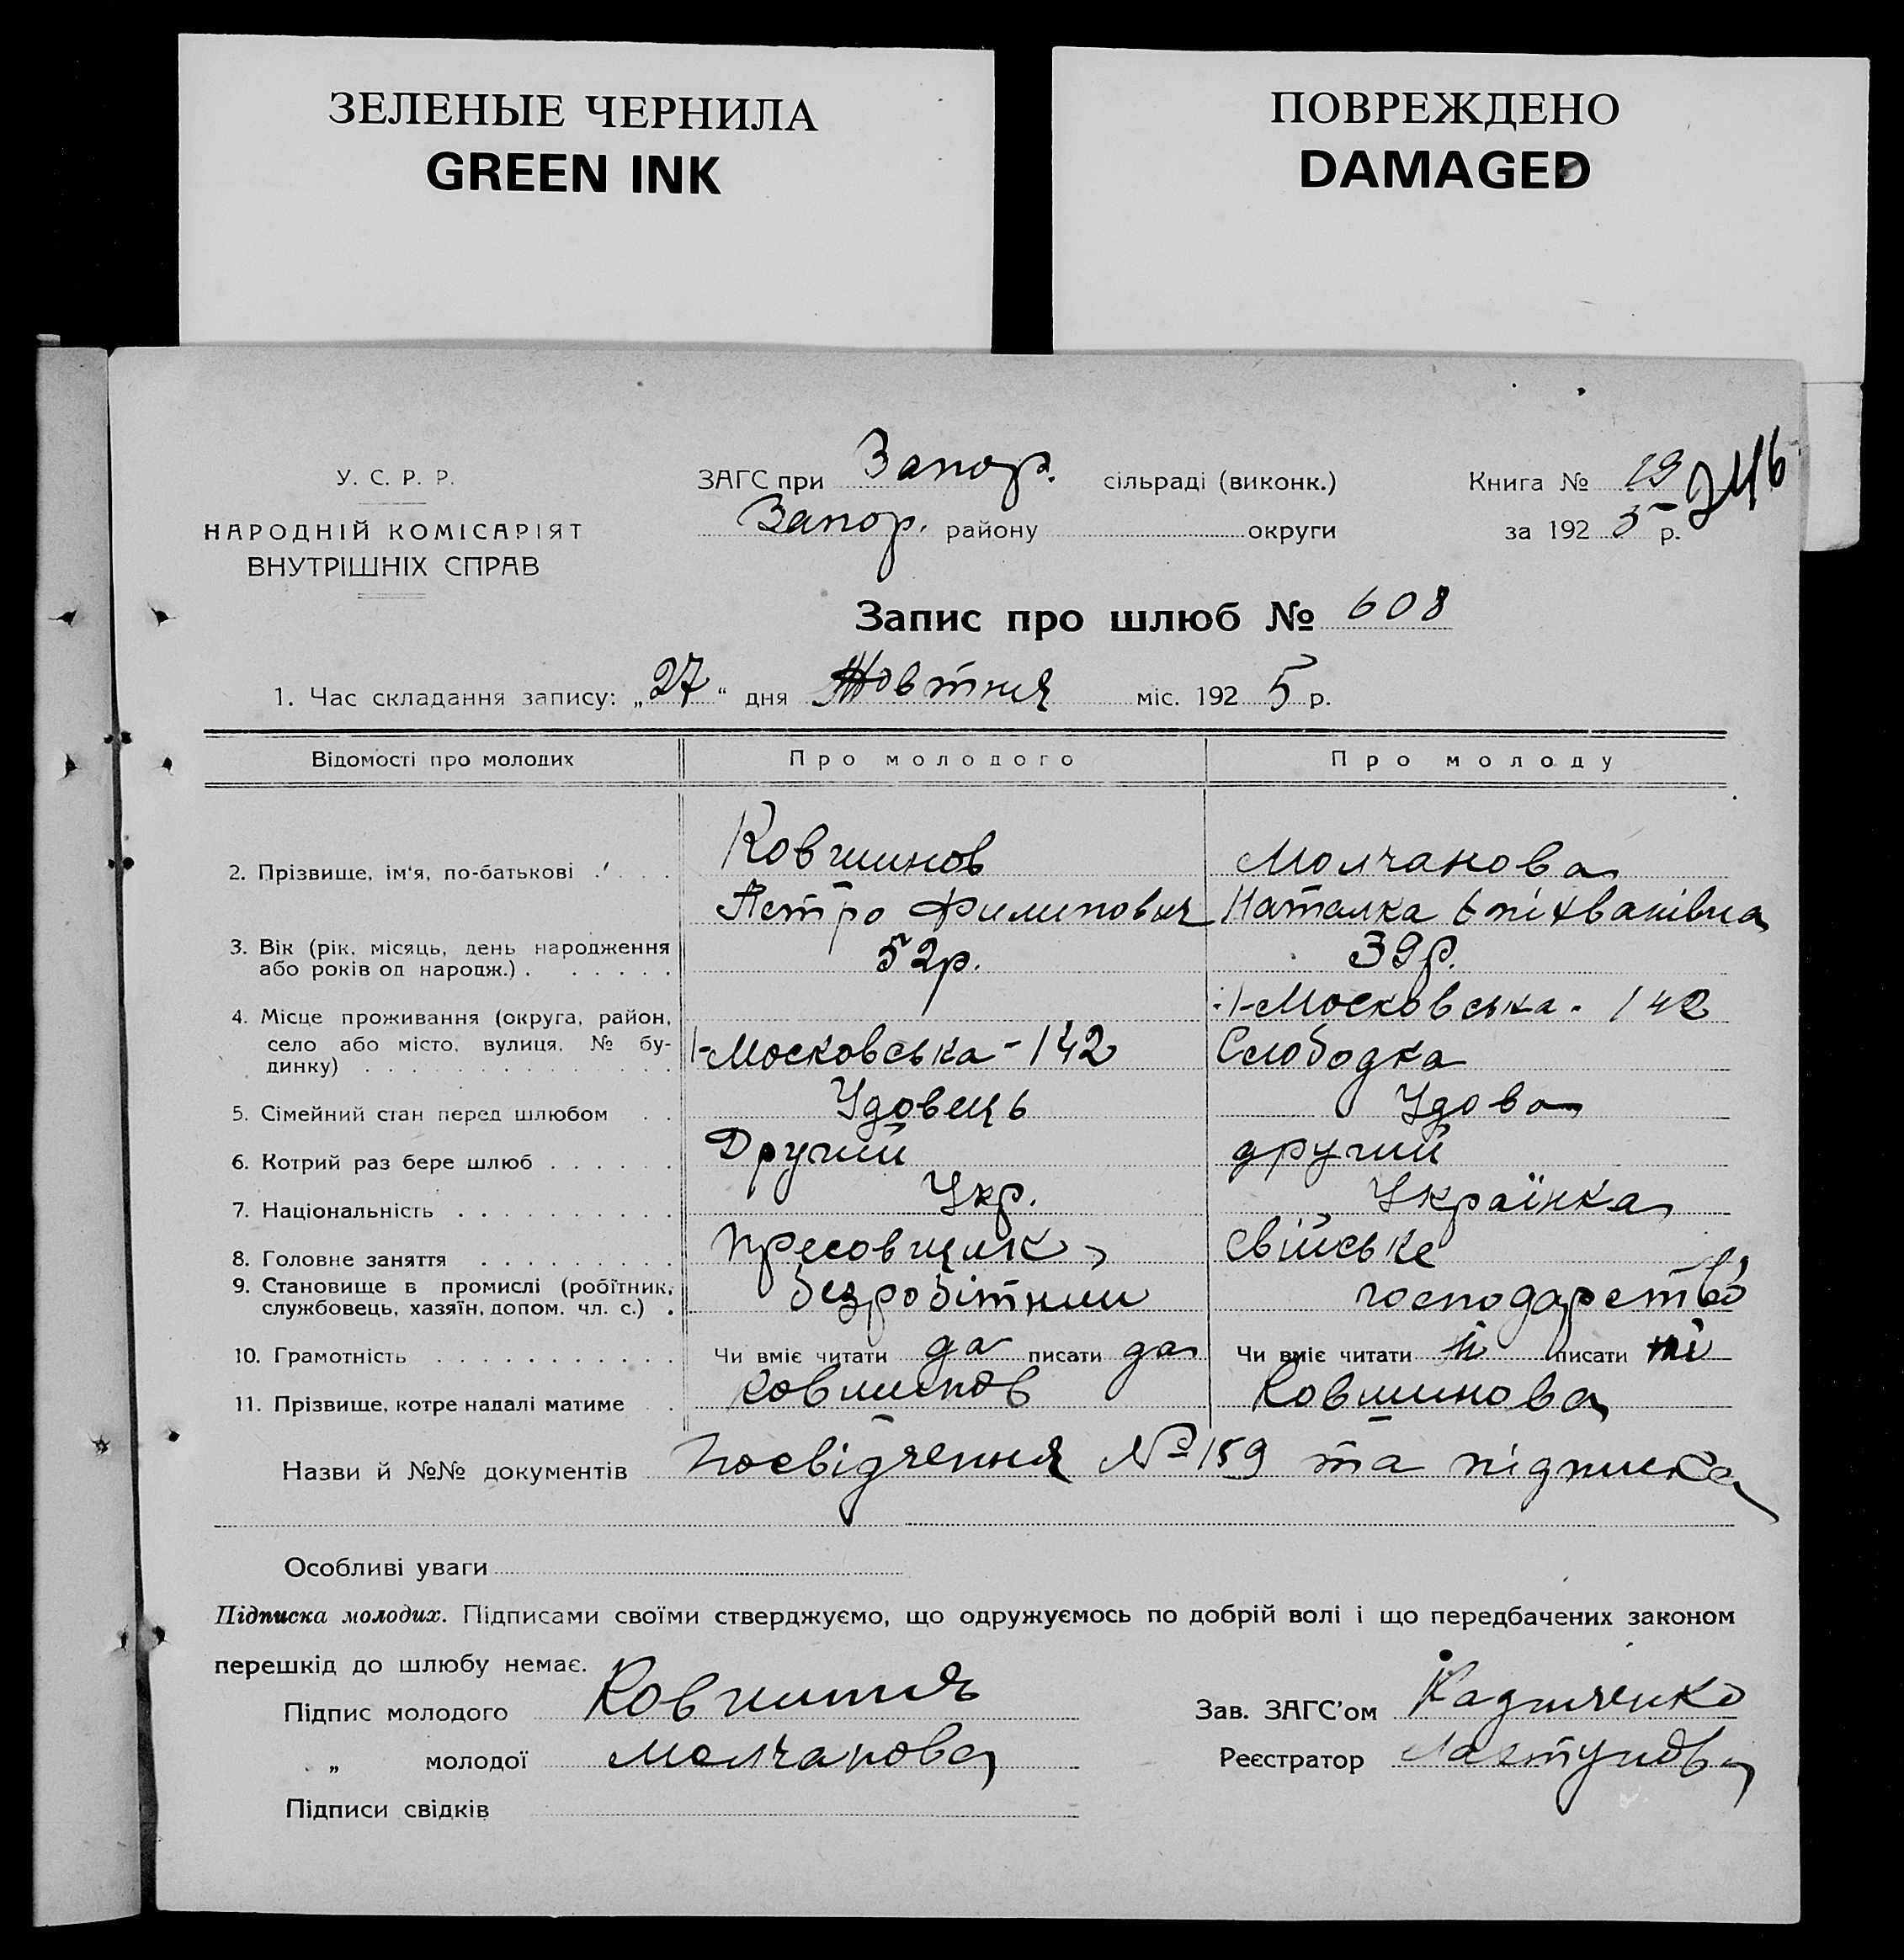 ЗЕЛЕНЫЕ ЧЕРНИЛА
GREEN INK
ПОВРЕЖДЕНО
DAMAGED
У. С. Р. Р.
НАРОДНІЙ КОМІСАРІЯТ
ВНУТРІШНІХ СПРАВ
ЗАГС при Запор. сільраді (виконк.)
Запор. району округи
Книга № 19 246
за 192 5 р.
Запис про шлюб № 608
1. Час складання запису: „27“ дня Жовтня міс. 192 5 р.
Відомості про молодих Про молодого Про молоду
2. Прізвище, ім'я, по-батькові Ковшинов Молчанова
Петро Филипович Наталка Епіхванівна
3. Вік (рік, місяць, день народження 52р. 39р.
або років од народж.)
4. Місце проживання (округа, район, 1-Московська - 142
село або місто, вулиця, № бу- 1-Московська - 142 Слободка
динку)
5. Сімейний стан перед шлюбом Удовець Удова
6. Котрий раз бере шлюб Другий другий
7. Національність Укр. Українка
8. Головне заняття пресовщик, свійське
9. Становище в промислі (робітник, безробітний господарство
службовець, хазяїн, допом. чл. с.)
10. Грамотність Чи вміє читати да писати да Чи вміє читати ні писати ні
11. Прізвище, котре надалі матиме Ковшинов Ковшинова
Назви й №№ документів Посвідчення № 159 та підписка
Особливі уваги
Підписка молодих. Підписами своїми стверджуємо, що одружуємось по добрій волі і що передбачених законом
перешкід до шлюбу немає.
Підпис молодого
Зав. ЗАГС'ом
„ молодої Молчанова
Реєстратор
Підписи свідків